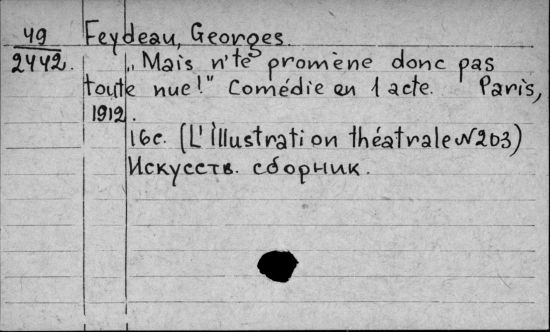 49 Feydeau, Georges.
2442. „Mais n'te promène donc pas
toute nue!" Comédie en 1 acte. Paris,
1912.
16c. (L'Illustration théatrale N203)
Искусств. сборник.